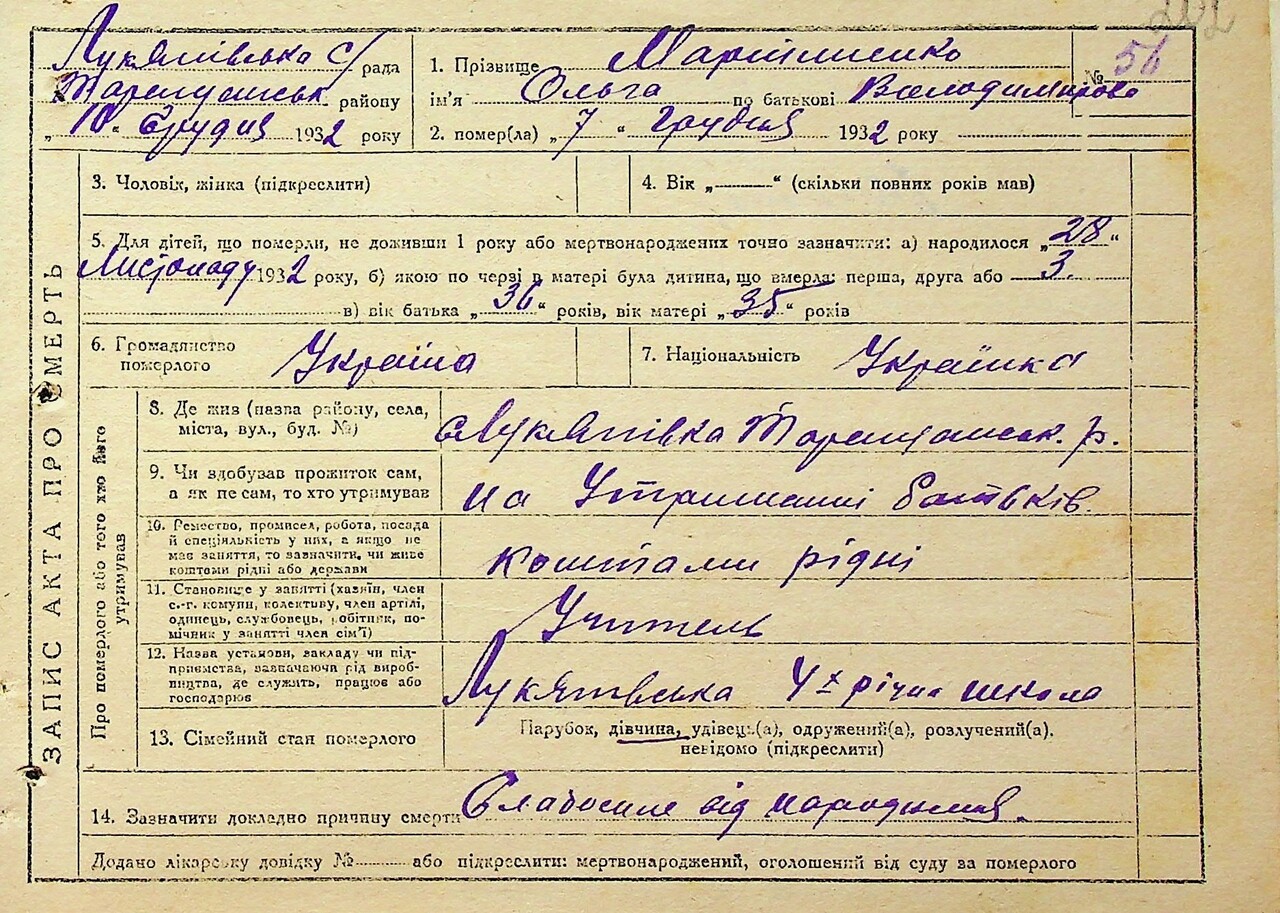 202
Лукянівська с/рада
Таращанськ району
„10“ Грудня 1932 року
1. Прізвище Мартиненко
№ 56
ім'я Ольга по батькові Володимирова
2. помер(ла) „7“ Грудня 1932 року
3. Чоловік, жінка (підкреслити)
4. Вік „——“ (скільки повних років мав)
5. Для дітей, що померли, не доживши 1 року або мертвонароджених точно зазначити: а) народилося „28“
Листопаду 1932 року, б) якою по черзі в матері була дитина, що вмерла: перша, друга або 3
в) вік батька „36“ років, вік матері „35“ років
6. Громадянство
померлого
Україна
7. Національність
Українка
8. Де жив (назва району, села,
міста, вул., буд. №)
Лукянівка Таращанськ. р.
9. Чи здобував прожиток сам,
а як не сам, то хто утримував
на Утриманні батьків.
10. Ремество, промисел, робота, посада
й спеціяльність у них, а якщо не
має заняття, то зазначити, чи живе
коштами рідні або держави
коштами рідні
11. Становище у занятті (хазяїн, член
с.-г. комуни, колективу, член артілі,
одинець, службовець, робітник, по-
мічник у занятті член сім'ї)
Учитель
12. Назва установи, закладу чи під-
приємства, зазначаючи рід вироб-
ництва, де служить, працює або
господарює
Лукянівська 4х річна школа
13. Сімейний стан померлого
Парубок, дівчина, удівець(а), одружений(а), розлучений(а),
невідомо (підкреслити)
14. Зазначити докладно причину смерти Слабосиле від народження.
Додано лікарську довідку № або підкреслити: мертвонароджений, оголошений від суду за померлого
ЗАПИС АКТА ПРО СМЕРТЬ
Про померлого або того хто його
утримував